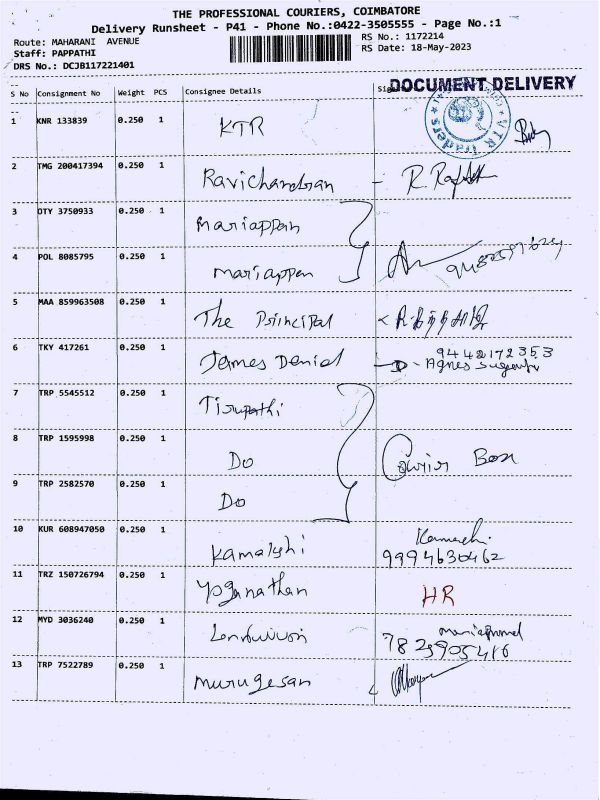 THE PROFESSIONAL COURIERS, COIMBATORE
Delivery Runsheet - P41 - Phone No.:0422-3505555 - Page No.:1
Route: MAHARANI AVENUE
RS No.: 1172214
Staff: PAPPATHI
RS Date: 18-May-2023
DRS No.: DCJB117221401
DOCUMENT DELIVERY
S No Consignment No Weight PCS Consignee Details
1 KNR 133839 0.250 1 KTR
2 TMG 200417394 0.250 1 Ravichandran -
3 OTY 3750933 0.250 1 Mariappan
4 POL 8085795 0.250 1 Mariappan
5 MAA 859963508 0.250 1 The Principal
6 TKY 417261 0.250 1 James Denial 9442172353
7 TRP 5545512 0.250 1 Tirupathi
8 TRP 1595998 0.250 1 Do Courier Box
9 TRP 2582570 0.250 1 Do
10 KUR 608947050 0.250 1 Kamalshi 9994630462
11 TRZ 150726794 0.250 1 Yoganathan HR
12 MYD 3036240 0.250 1
13 TRP 7522789 0.250 1 Murugesan